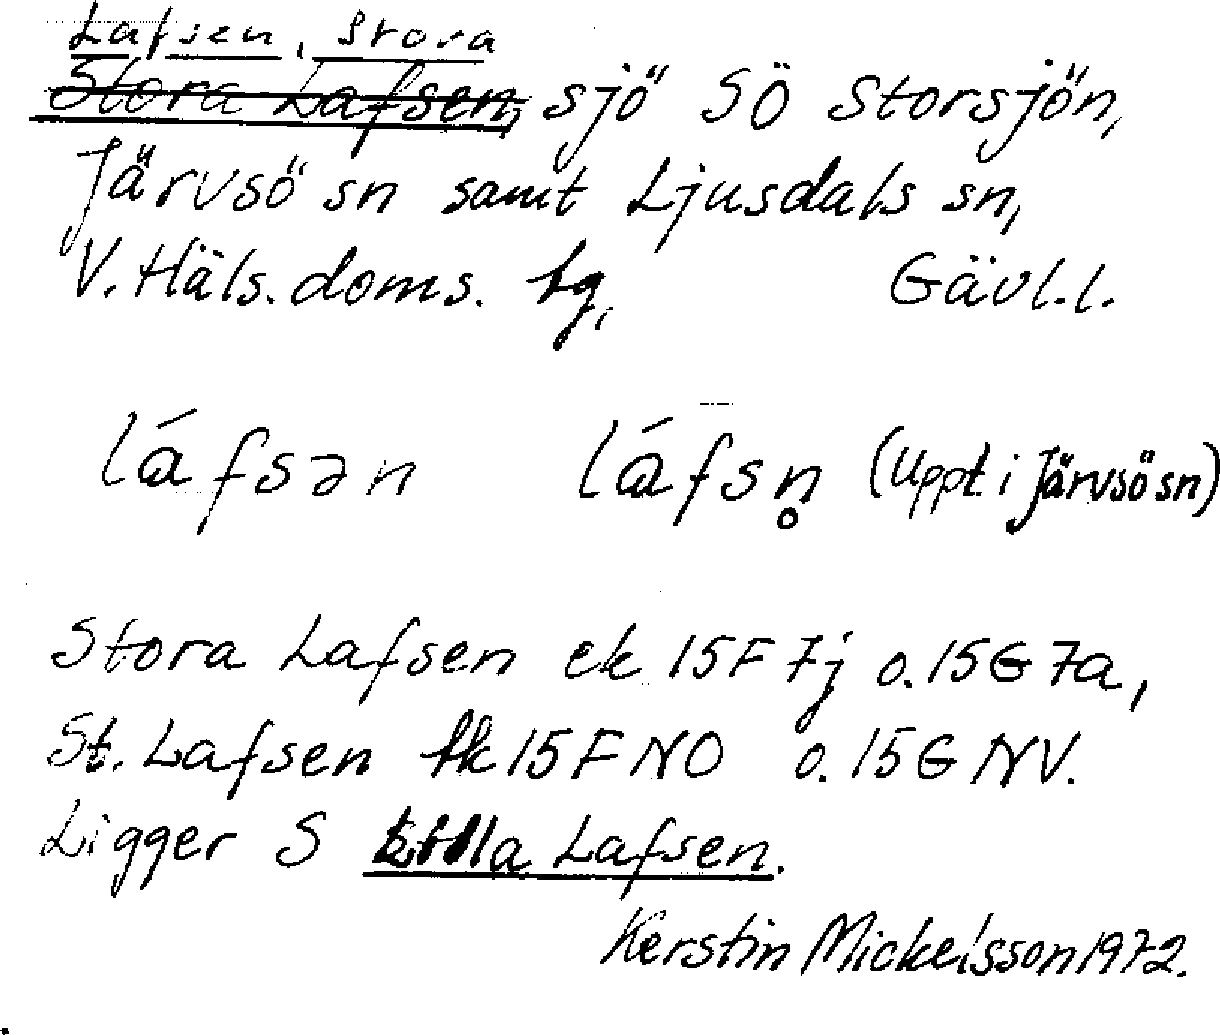 Lafsen, Stora
Stora Lafsen, sjö SÖ Storsjön,
Järvsö sn samt Ljusdals sn,
V. Häls. doms. tg, Gävl. l.
láfsən láfsn̥ (Uppt i Järvsö sn)
Stora Lafsen ek 15F 7j o. 15G 7a,
St. Lafsen tk 15F NO o. 15G NV.
Ligger S Lilla Lafsen.
Kerstin Mickelsson 1972.